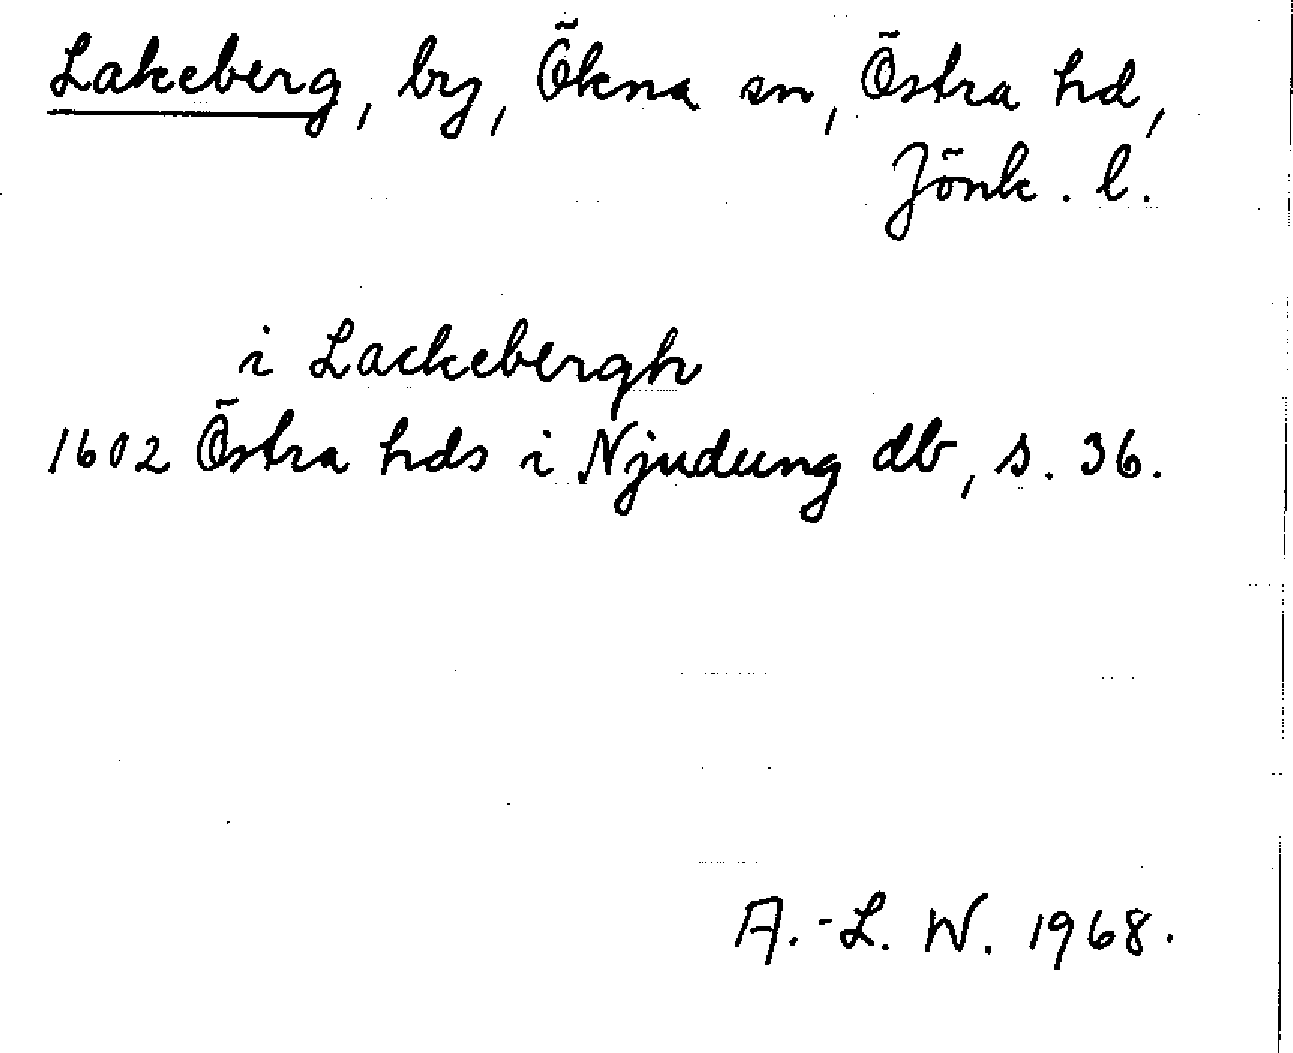 Lakeberg, by, Ökna sn, Östra hd,
Jönk. l.
i Lackebergh
1602 Östra hds i Njudung db, s. 36.
A.-L. W. 1968.